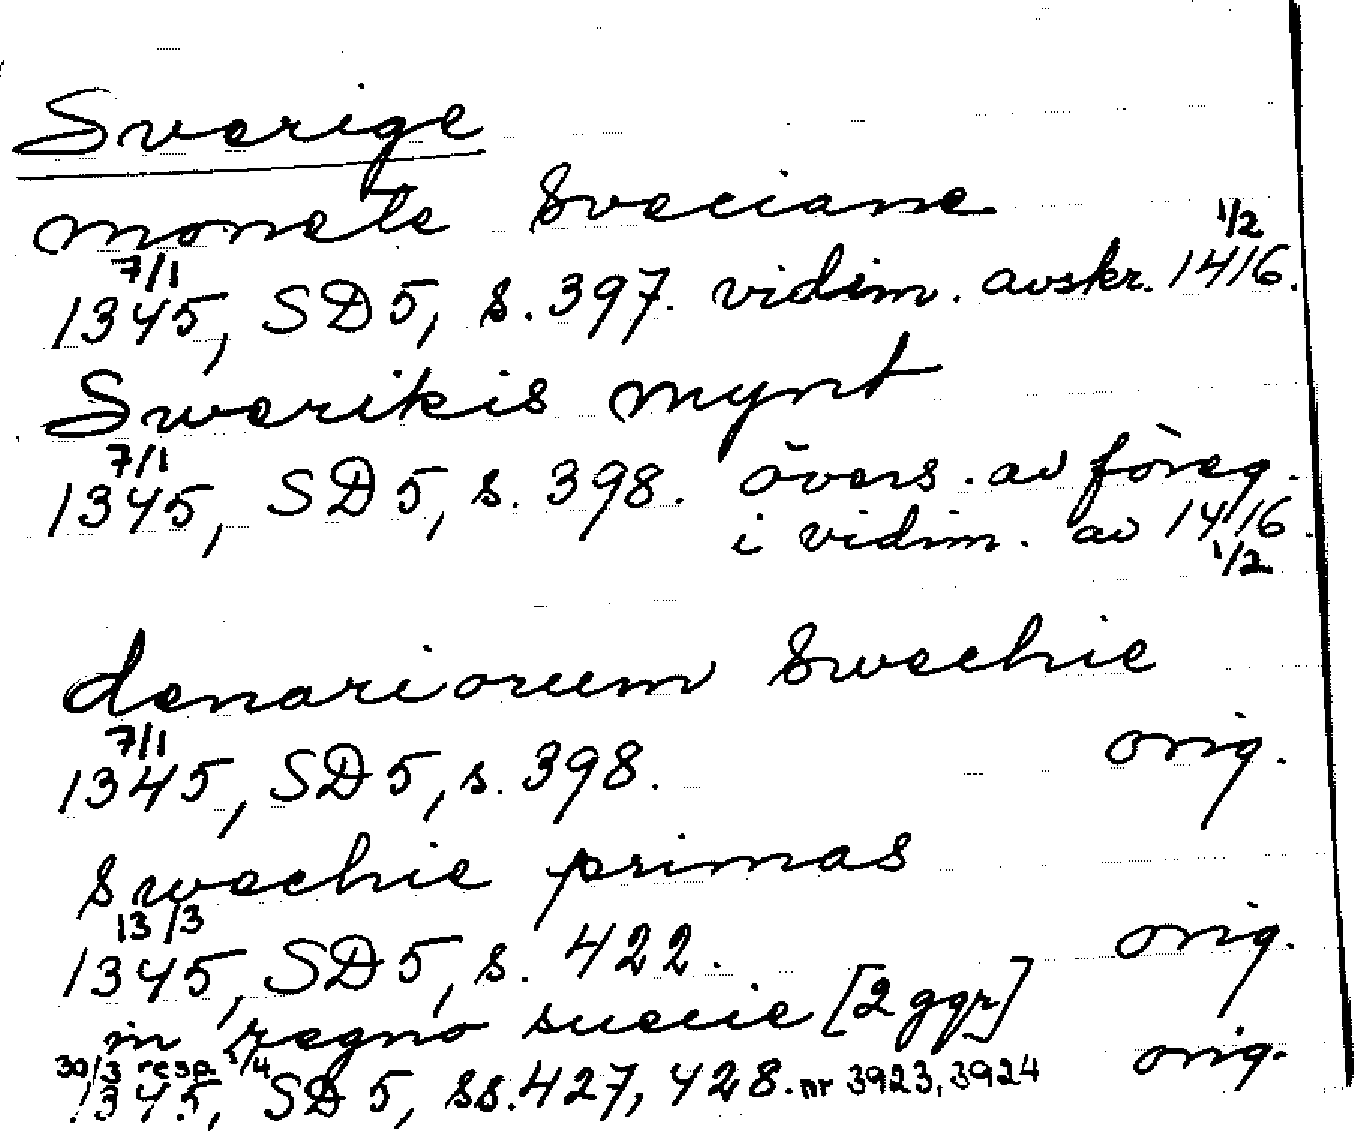 Sverige
monete Sveciane
7/1 1/2
1345, SD 5, s. 397. vidim. avskr. 1416.
Swerikis mynt
7/1
1345, SD 5, s. 398. övers. av föreg.
i vidim. av 1416.
1/2
denariorum Swechie
7/1
1345, SD 5, s. 398. orig.
Swechie primas
13/3
1345, SD 5, s. 422. orig.
in regno suecie [2 ggr]
30/3 resp. 1/4 orig.
1345, SD 5, ss. 427, 428. nr 3923, 3924